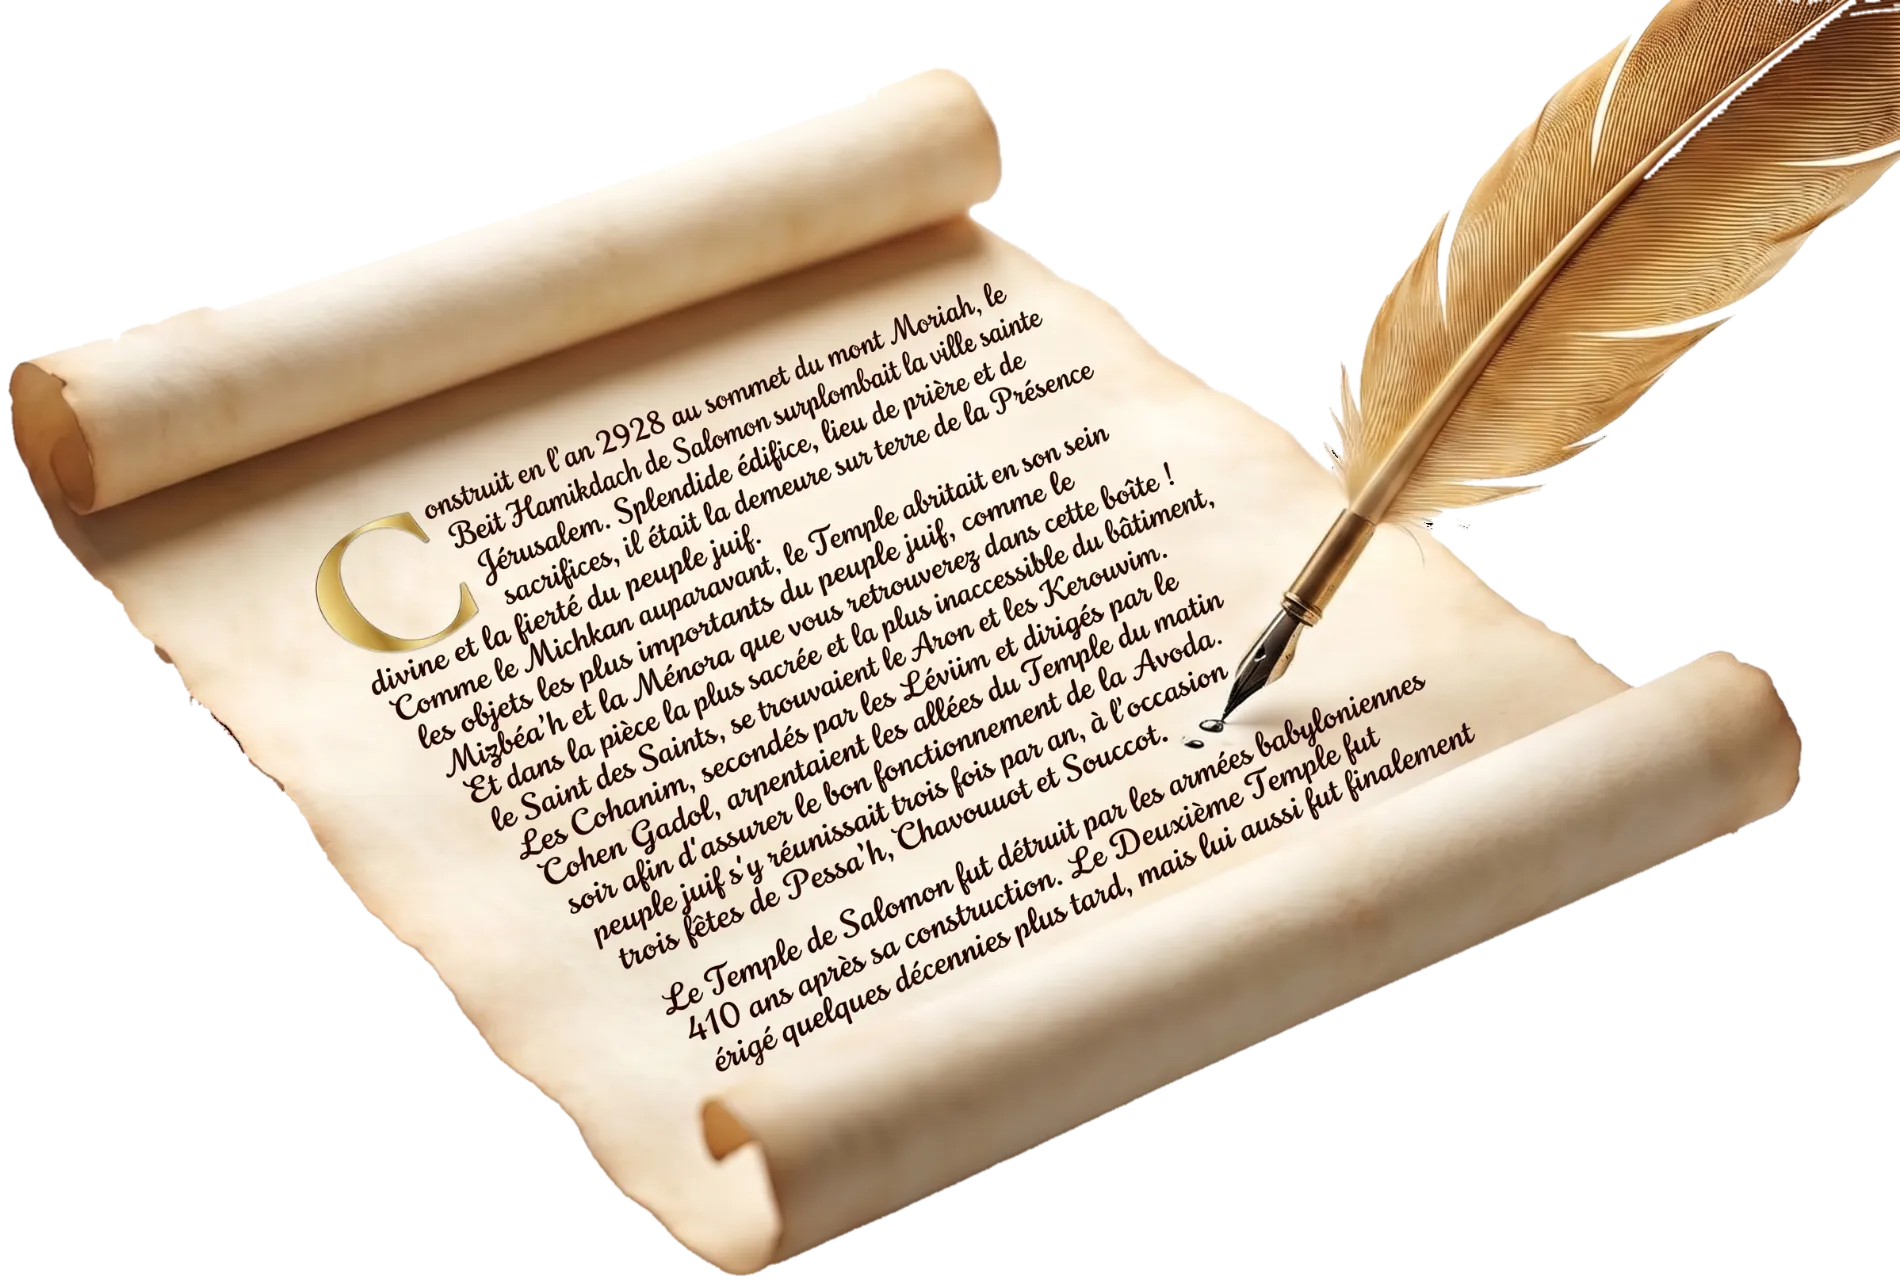 Construit en l'an 2928 au sommet du mont Moriah, le
Beit Hamikdach de Salomon surplombait la ville sainte
Jérusalem. Splendide édifice, lieu de prière et de
sacrifices, il était la demeure sur terre de la Présence
divine et la fierté du peuple juif.
Comme le Michkan auparavant, le Temple abritait en son sein
les objets les plus importants du peuple juif, comme le
Mizbéa'h et la Ménora que vous retrouverez dans cette boîte !
Et dans la pièce la plus sacrée et la plus inaccessible du bâtiment,
le Saint des Saints, se trouvaient le Aron et les Kerouvim.
Les Cohanim, secondés par les Léviim et dirigés par le
Cohen Gadol, arpentaient les allées du Temple du matin
soir afin d'assurer le bon fonctionnement de la Avoda.
peuple juif s'y réunissait trois fois par an, à l'occasion
trois fêtes de Pessa'h, Chavouuot et Souccot.
Le Temple de Salomon fut détruit par les armées babyloniennes
410 ans après sa construction. Le Deuxième Temple fut
érigé quelques décennies plus tard, mais lui aussi fut finalement